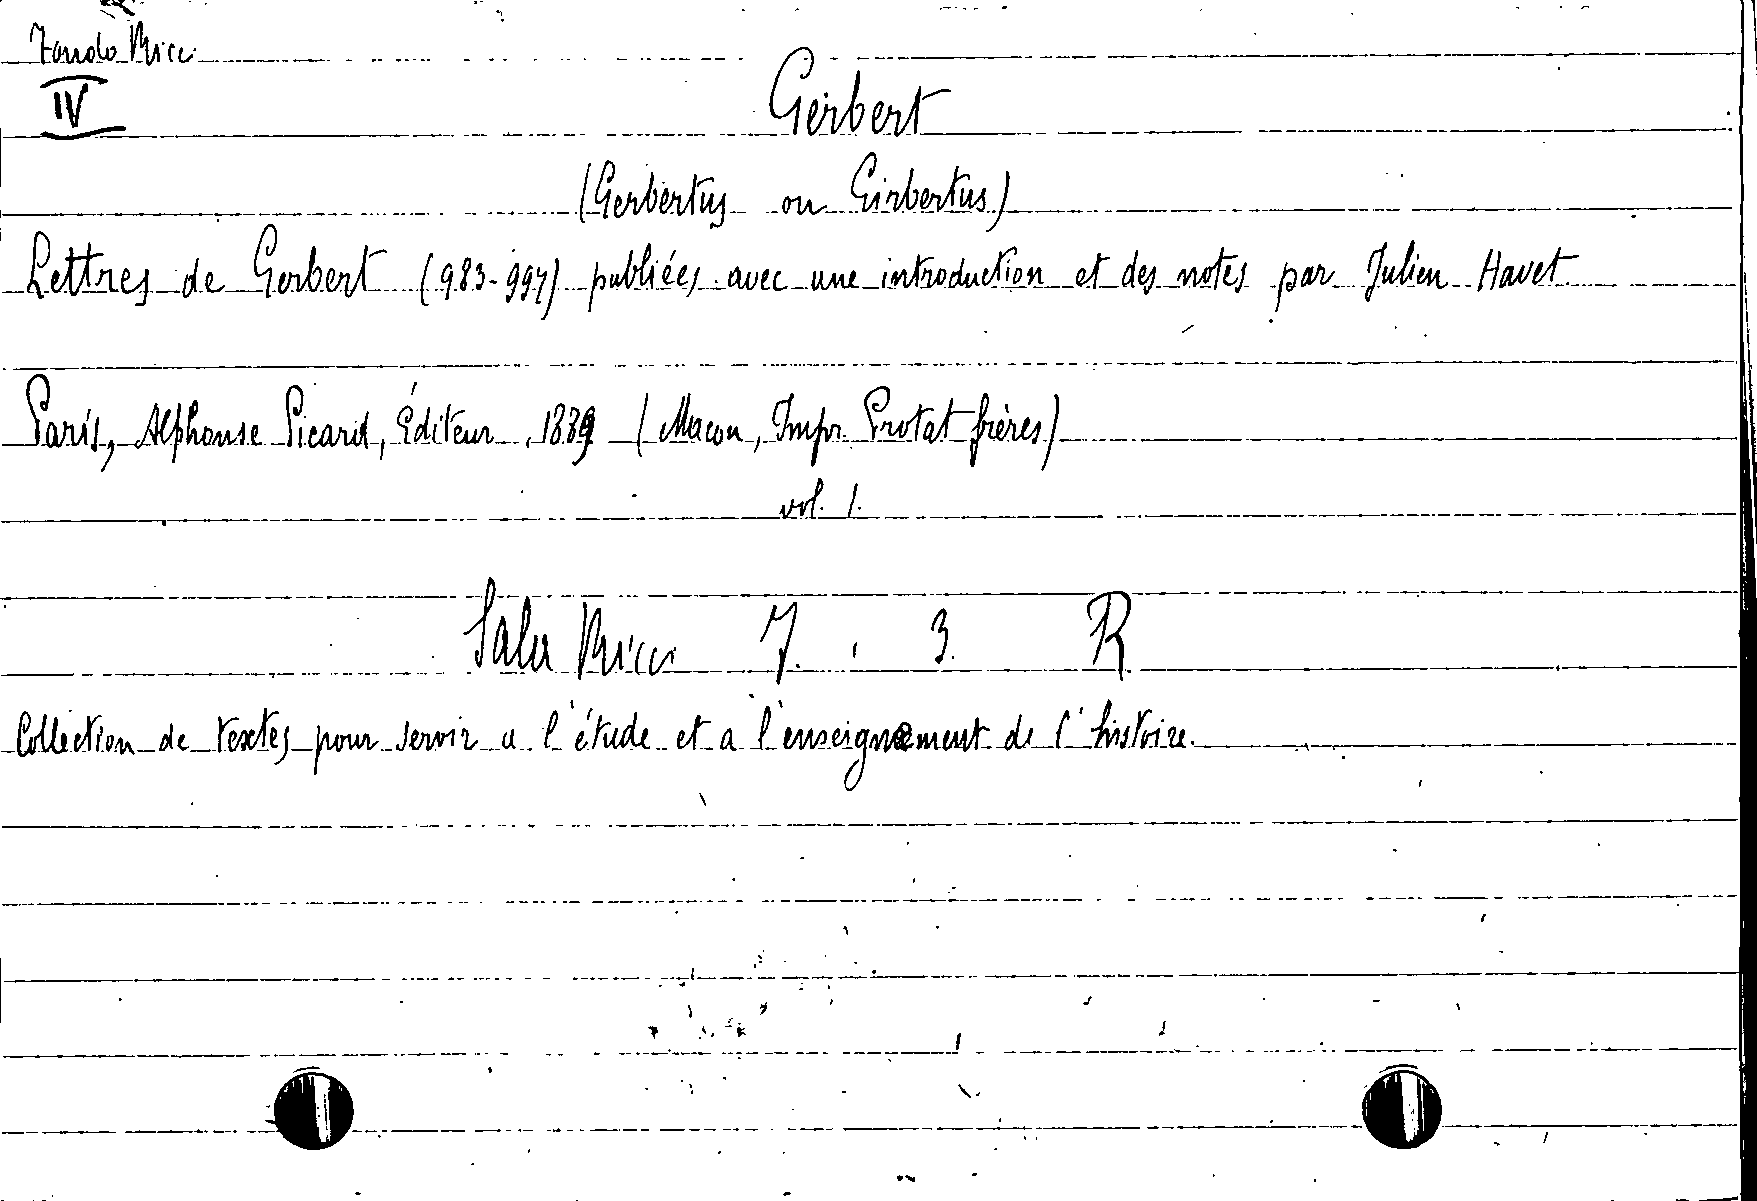 Fondo Ricci
IV
Gerbert
(Gerbertus ou Girbertus)
Lettres de Gerbert (983-997) publiées avec une introduction et des notes par Julien Havet.
Paris, Alphonse Picard, Éditeur, 1889 (Macon, Impr. Protat frères)
vol. 1.
Sala Ricci 7. 3. R
Collection de textes pour servir a l'étude et a l'enseignement de l'histoire.